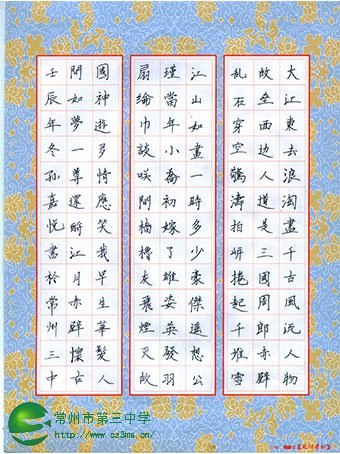 大江東去浪淘盡千古風流人物
故垒西边人道是三國周郎赤壁
乱石穿空驚濤拍岍捲起千堆雪
江山如畫一時多少豪傑遥想公
瑾當年小喬初嫁了雄姿英發羽
扇綸巾談咲間檣櫓灰飛煙灭故
國神遊多情應笑我早生華髮人
間如夢一尊還酹江月赤壁懷古
壬辰年冬孫嘉悦書於常州三中
常州市第三中学
http://www.cz3ms.cn/